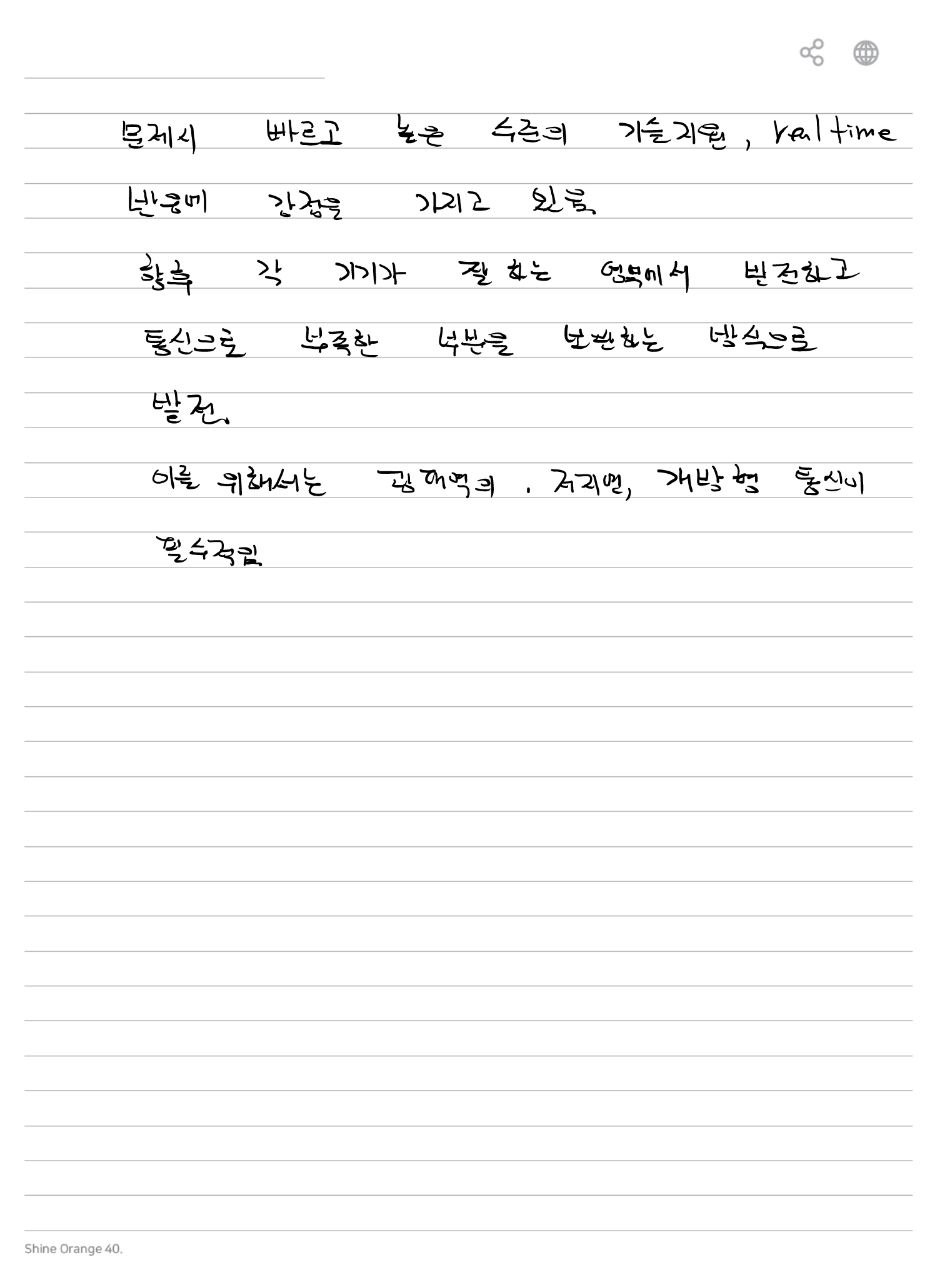 문제시 빠르고 높은 수준의 기술지원, real time
반응에 강점을 가지고 있음.
향후 각 기기가 잘 하는 업무에서 발전하고
통신으로 부족한 부분을 보완하는 방식으로
발전.
이를 위해서는 광대역의, 저지연, 개방형 통신이
필수적임
Shine Orange 40.